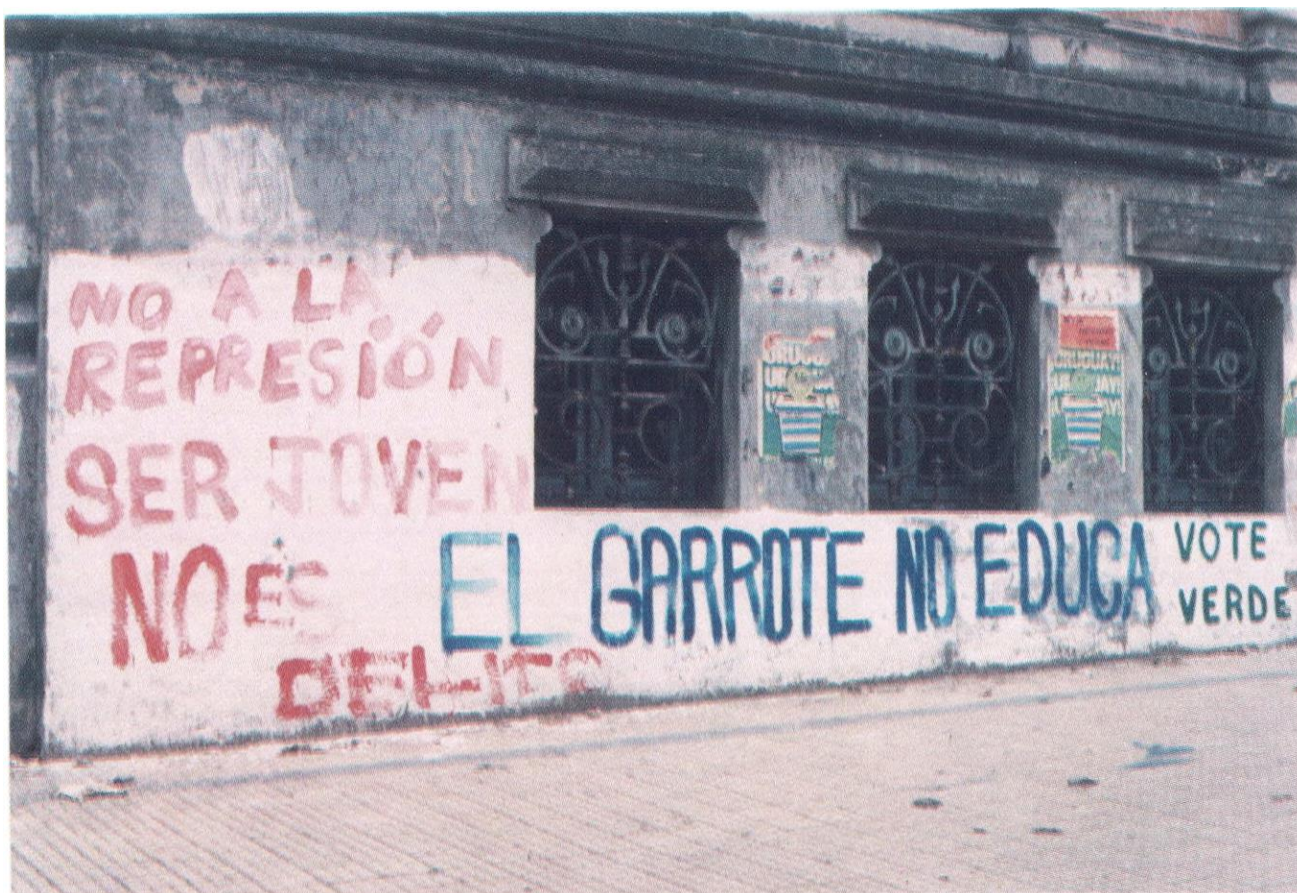 NO A LA
REPRESIÓN
SER JOVEN
NO ES
DELITO
EL GARROTE NO EDUCA
VOTE
VERDE